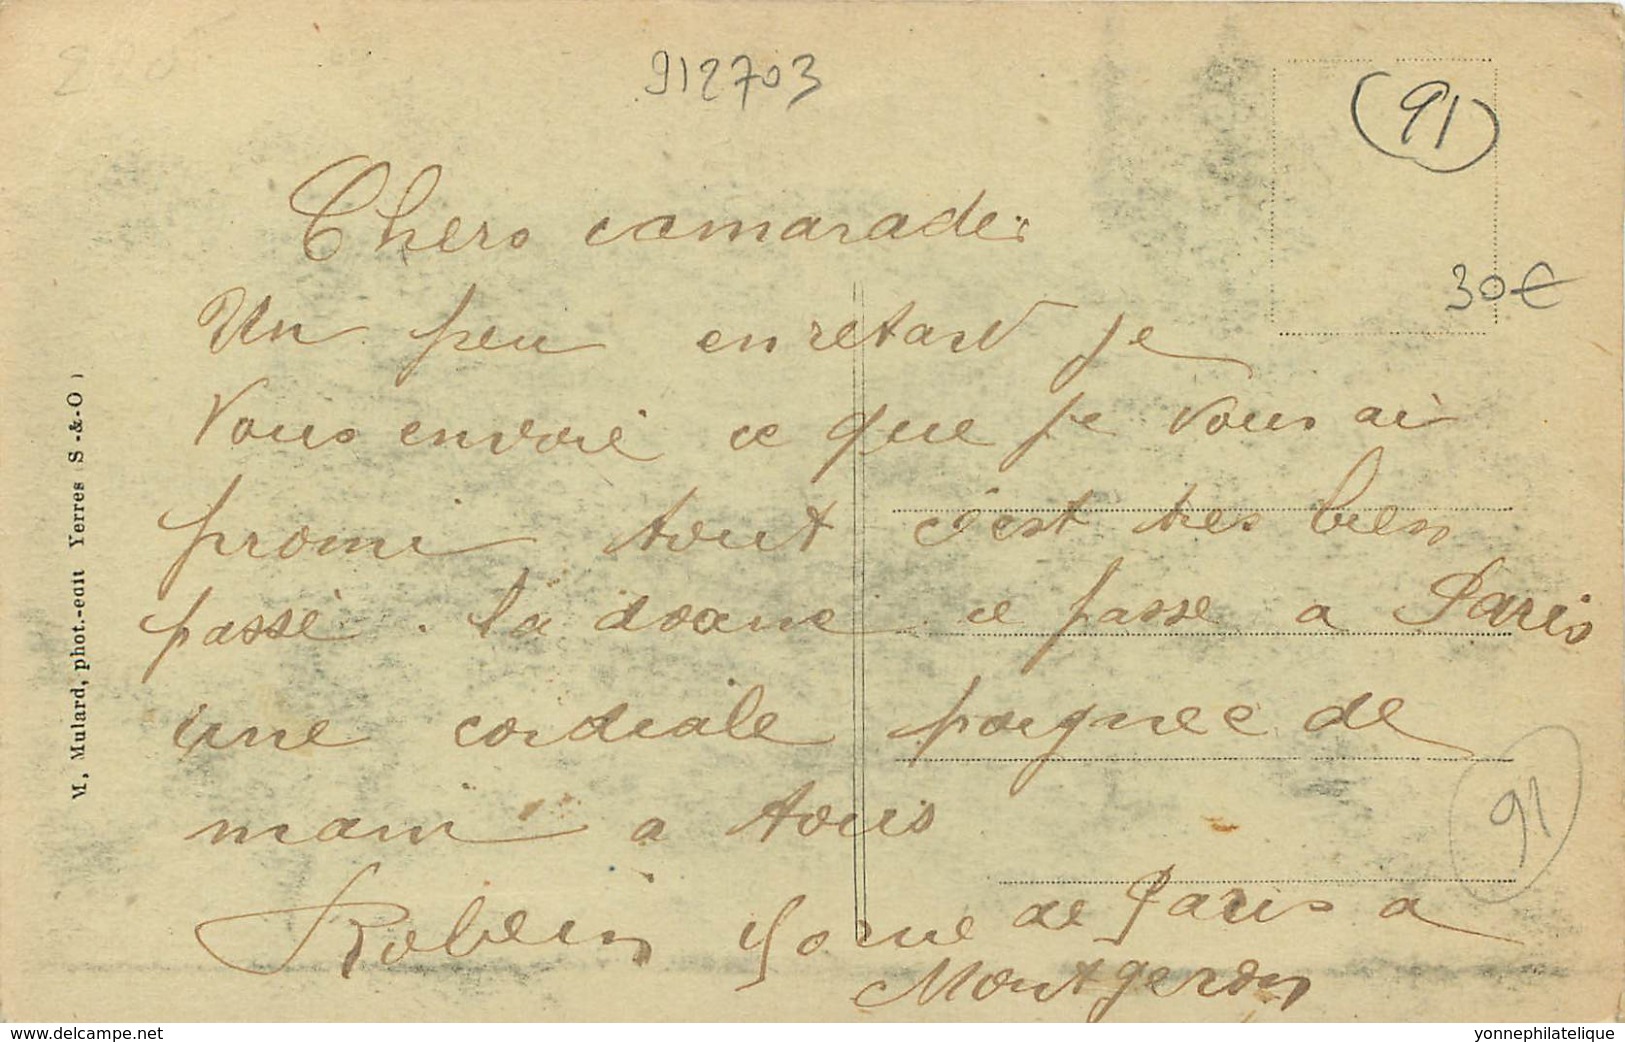 912703
(91)
Chers camarades
Un peu en retard je
30€
Vous envoie ce que je vous ai
promi tout c'est tres bien
passé. la doane ce passe a Paris
une cordiale poignee de
main a tous
91
Robein rue de Paris a
Montgeron
M. Mulard, phot.-edit Yerres (S-&-O)
www.delcampe.net
yonnephilatelique